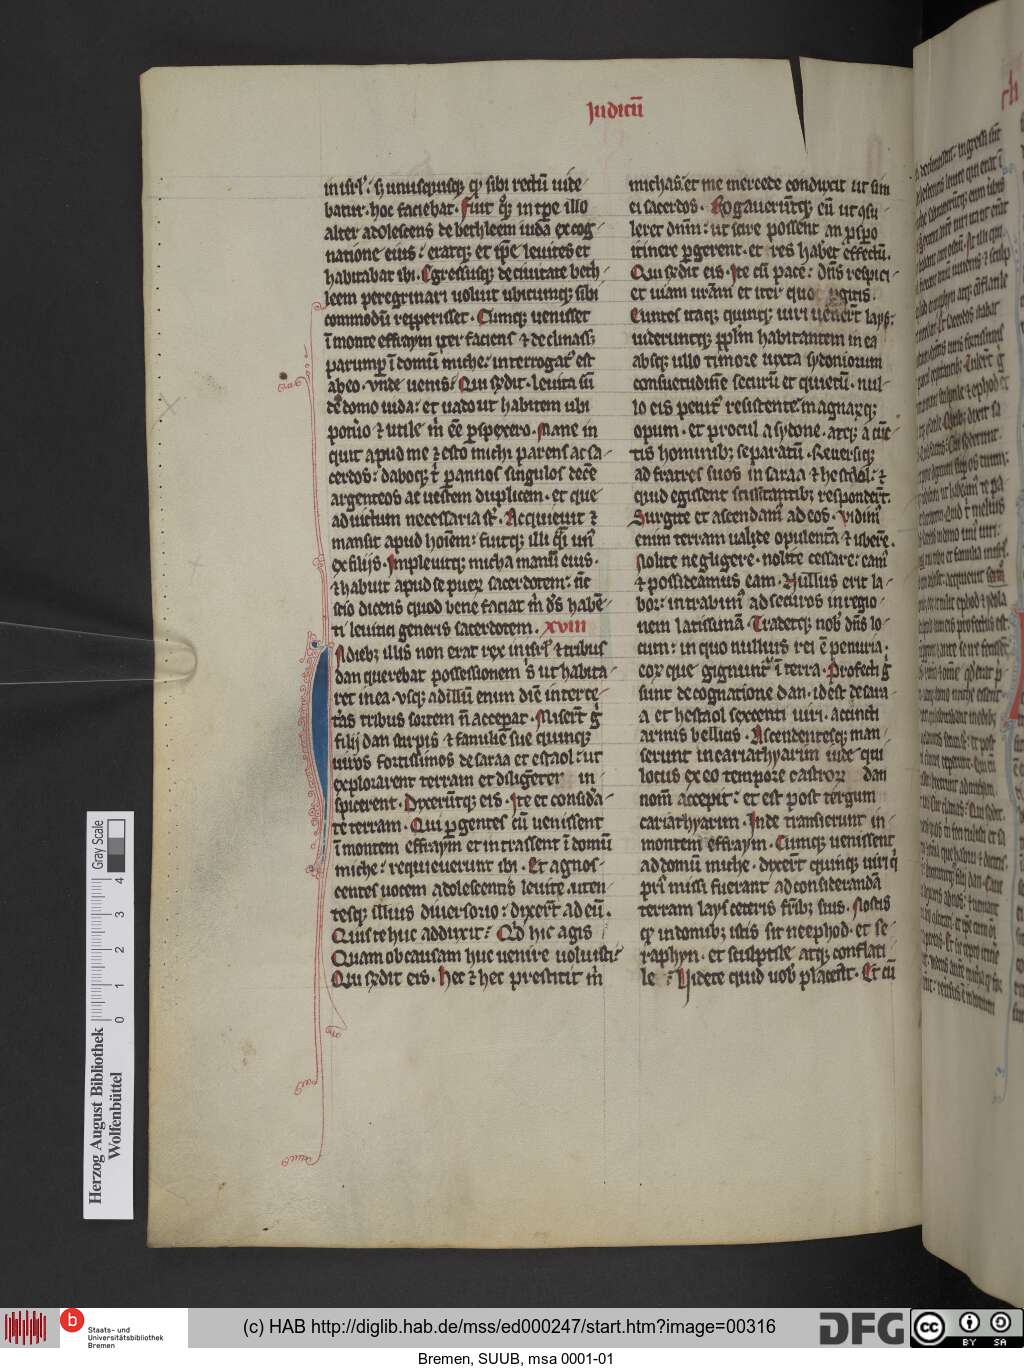 Iudicū
in isrl'. s; unusquisq; qd' sibi rectū uide
batur. hoc faciebat. Fuit q̄; in tp̄e illo
alter adolescens de bethleem iuda ex cog
natione eius. eratq; et ip̄e leuites et
habitabat ibi. Egressusq; de ciuitate beth
leem peregrinari uoluit ubicumq; sibi
commodū repperisset. Cumq; uenisset
ī monte effraym iter faciens & declinass;
parump̄ ī domū miche. interrogat' est
ab eo. vnde uenis. Qui r̄ndit. leuita sū
de domo iuda. et uado ut habitem ubi
potuo & utile m̄ eē p̄spexero. Mane in
quit apud me & esto michi parens ac sa
cerdos. daboq; t' p̄ annos singulos decē
argenteos ac uestem duplicem. et que
ad uictum necessaria sr̄. Acquieuit &
mansit apud hoīem. fuitq; illi q̄si un'
ex filijs. Impleuitq; micha manū eius.
& habuit apud se pueꝝ sacerdotem. nūc
scio dicens quod bene faciat m̄ d's habē
ti leuitici generis sacerdotem. xviii
In dieb; illis non erat rex in isrl' & tribus
dan querebat possessionem s' ut habita
ret in ea. vsq; ad illū enim diē inter ce
t'as tribus sortem n̄ accepat. Miser̄t g°
filij dan stirpis & familie sue quinq;
uiros fortissimos de saraa et estaol. ut
explorarent terram et diligēter in
spicerent. Dixerūtq; eis. Ite et consida
te terram. Qui p̄gentes cū uenissent
ī montem effraym et intrassent ī domū
miche. requieuerunt ibi. Et agnos
centes uocem adolescentis leuite. uten
tesq; illius diuersorio. dixer̄t ad eū.
Quis te huc adduxit. Qd' hic agis
Quam ob causam huc uenire uoluisti
Qui r̄ndit eis. hec & hec prestitit m̄
michas. et me mercede conduxit ut sim
ei sacerdos. Rogauerūtq; eū ut 9su
leret dnm. ut scire possent an p̄sp̄o
itinere p̄gerent. et res haberet effectū.
Qui r̄ndit eis. Ite cū pace. dn̄s respici
et uiam ur̄am et iter quo p̄gitis.
Euntes itaq; quinq; uiri uener̄t lays.
uideruntq; pplm habitantem in ea
absq; ullo timore iuxta sydoniorum
consuetudinē securū et quietū. nul
lo eis penit' resistente magnarꝝq;
opum. et procul a sydone. atq; a cūc
tis hominib; separatū. Reuersiq;
ad fratres suos in saraa & hesthaol. &
quid egissent sciscitantib; responder̄t.
Surgite et ascendam' ad eos. Vidim'
enim terram ualide opulentā & uberē.
Nolite negligere. nolite cessare. eam'
& possideamus eam. Nullus erit la
bor. intrabim' ad securos in regio
nem latissimā. Tradetq; nob' dn̄s lo
cum. in quo nullius rei ē penuria.
eoꝝ que gignunt' ī terra. Profecti g°
sunt de cognatione dan. id est de sara
a et hestaol sexcenti uiri. accincti
armis bellicis. Ascendentesq; man
serunt in cariathyarim iude qui
locus ex eo tempore castroꝝ dan
nom̄ accepit. et est post tergum
cariathyarim. Inde transierunt in
montem effraym. Cumq; uenissent
ad domū miche. dixer̄t quinq; uiri q'
pri' missi fuerant ad considerandā
terram lays ceteris fr̄ib; suis. Nostis
qd' in domib; istis sit neephod. et se
raphyn. et sculptile atq; conflati
le. Videte quid uob' placeat. Et cū
Herzog August Bibliothek
Wolfenbüttel
0 1 2 3 4
Gray Scale
b Staats- und
Universitätsbibliothek
Bremen
(c) HAB http://diglib.hab.de/mss/ed000247/start.htm?image=00316
DFG
cc BY SA
Bremen, SUUB, msa 0001-01